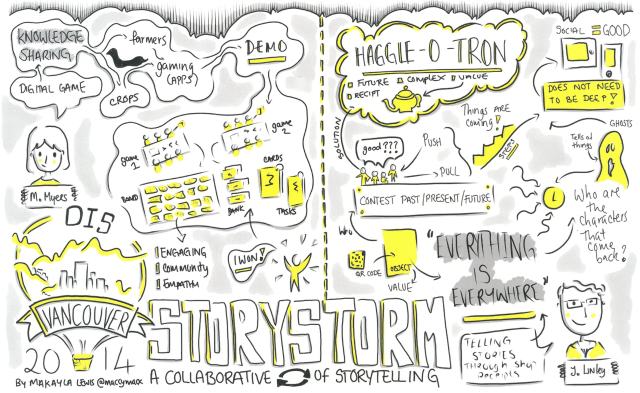 KNOWLEDGE
SHARING
farmers
gaming
(APPS)
DEMO
DIGITAL GAME
CROPS
M. Myers
game
1
game
2
BOARD
BANK
CARDS
TASKS
ENGAGING
Community
Empathy
I WON!
DIS
VANCOUVER
2014
BY MAKAYLA LEWIS @maccymacx
STORYSTORM
A COLLABORATIVE OF STORYTELLING
HAGGLE-O-TRON
FUTURE COMPLEX VALUE
RECIPT
SOCIAL = GOOD
DOES NOT NEED
TO BE DEEP!
SOLUTION
good???
PUSH
PULL
Things ARE
coming!
STEPS
GHOSTS
Tells of
things
CONTEST PAST/PRESENT/FUTURE
Who
QR CODE
OBJECT
VALUE
Who are
the
characters
that
come
back?
"EVERYTHING
IS
EVERYWHERE"
TELLING
STORIES
through
J. Linley